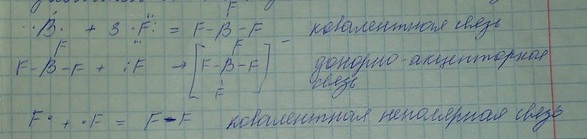 F
··B· + 3 ·F: = F-B-F ковалентная связь
F F
F-B-F + :F → [F-B-F]⁻ донорно-акцепторная
F связь
F· + ·F = F-F ковалентная неполярная связь